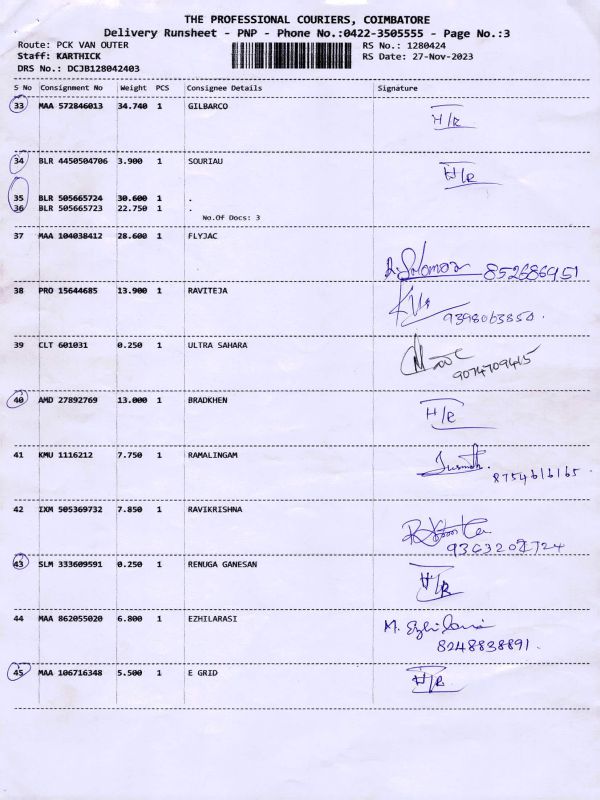 THE PROFESSIONAL COURIERS, COIMBATORE
Delivery Runsheet - PNP - Phone No.:0422-3505555 - Page No.:3
Route: PCK VAN OUTER RS No.: 1280424
Staff: KARTHICK RS Date: 27-Nov-2023
DRS No.: DCJB128042403
S No Consignment No Weight PCS Consignee Details Signature
33 MAA 572846013 34.740 1 GILBARCO
H/R
34 BLR 4450504706 3.900 1 SOURIAU
H/R
35 BLR 505665724 30.600 1 .
36 BLR 505665723 22.750 1 .
No.Of Docs: 3
37 MAA 104038412 28.600 1 FLYJAC
852686951
38 PRO 15644685 13.900 1 RAVITEJA
9398063850.
39 CLT 601031 0.250 1 ULTRA SAHARA
9074709415
40 AMD 27892769 13.000 1 BRADKHEN
H/R
41 KMU 1116212 7.750 1 RAMALINGAM
8754616165.
42 IXM 505369732 7.850 1 RAVIKRISHNA
43 SLM 333609591 0.250 1 RENUGA GANESAN
H/R
44 MAA 862055020 6.800 1 EZHILARASI
M. Ezhilarasi
8248838891.
45 MAA 106716348 5.500 1 E GRID
H/R